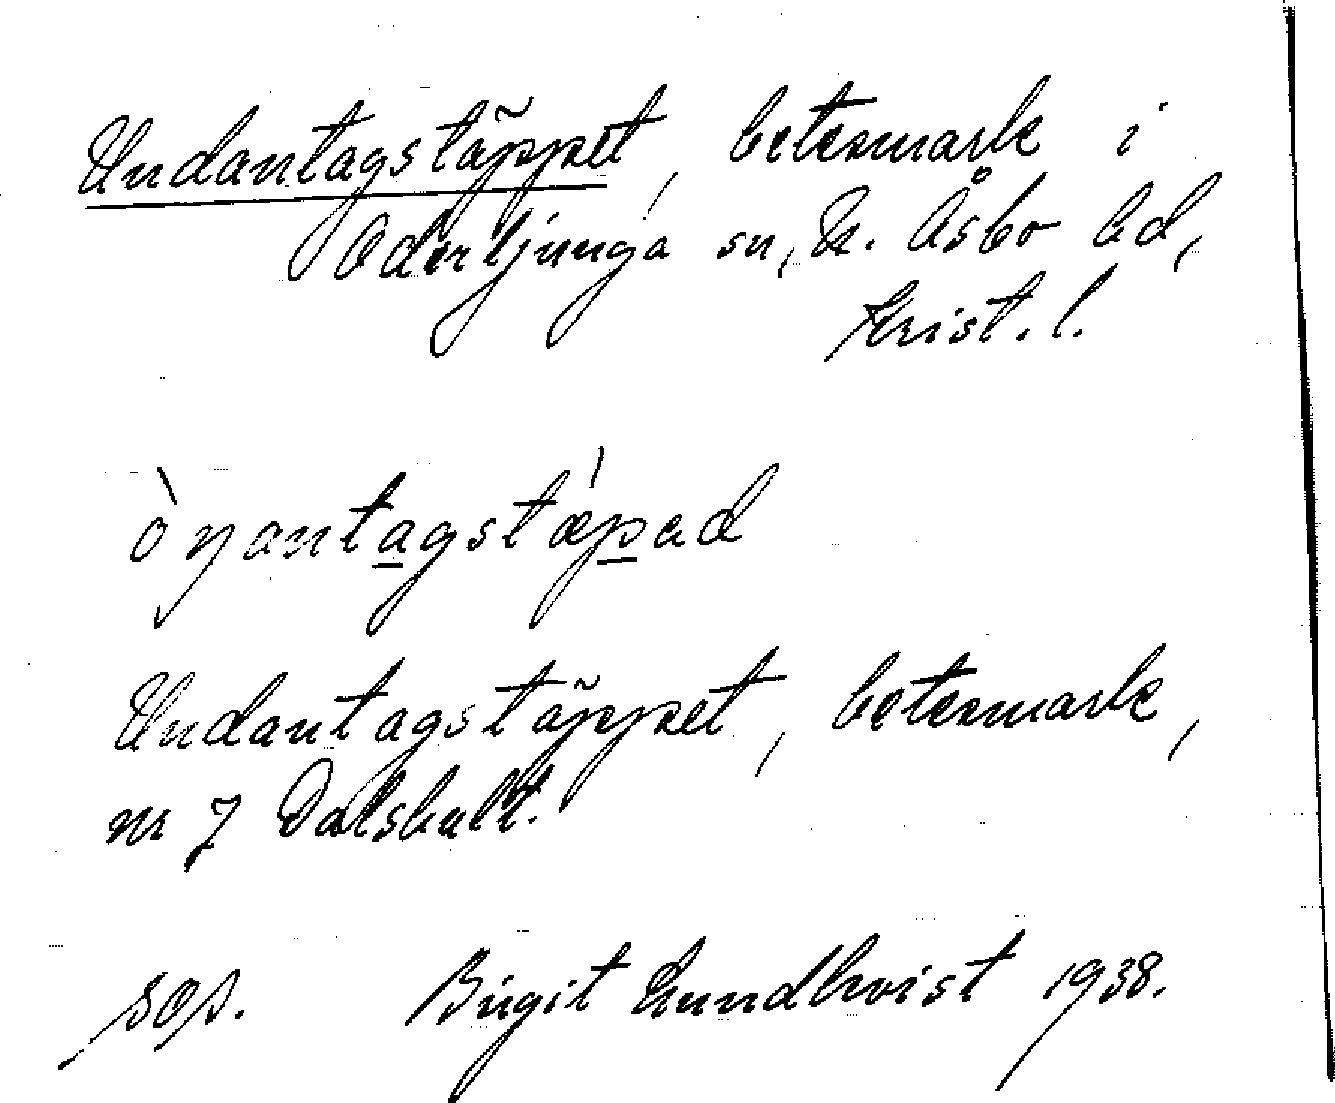 Undantagstäppet, betesmark i
Oderljunga sn, N. Åsbo hd,
Krist. l.
ò̀ŋantagstǽped
Undantagstäppet, betesmark,
nr 7 Dalshult.
sep. Birgit Lundkvist 1938.